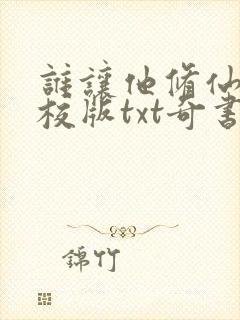 誰讓他脩仙
校版txt奇書
錦竹